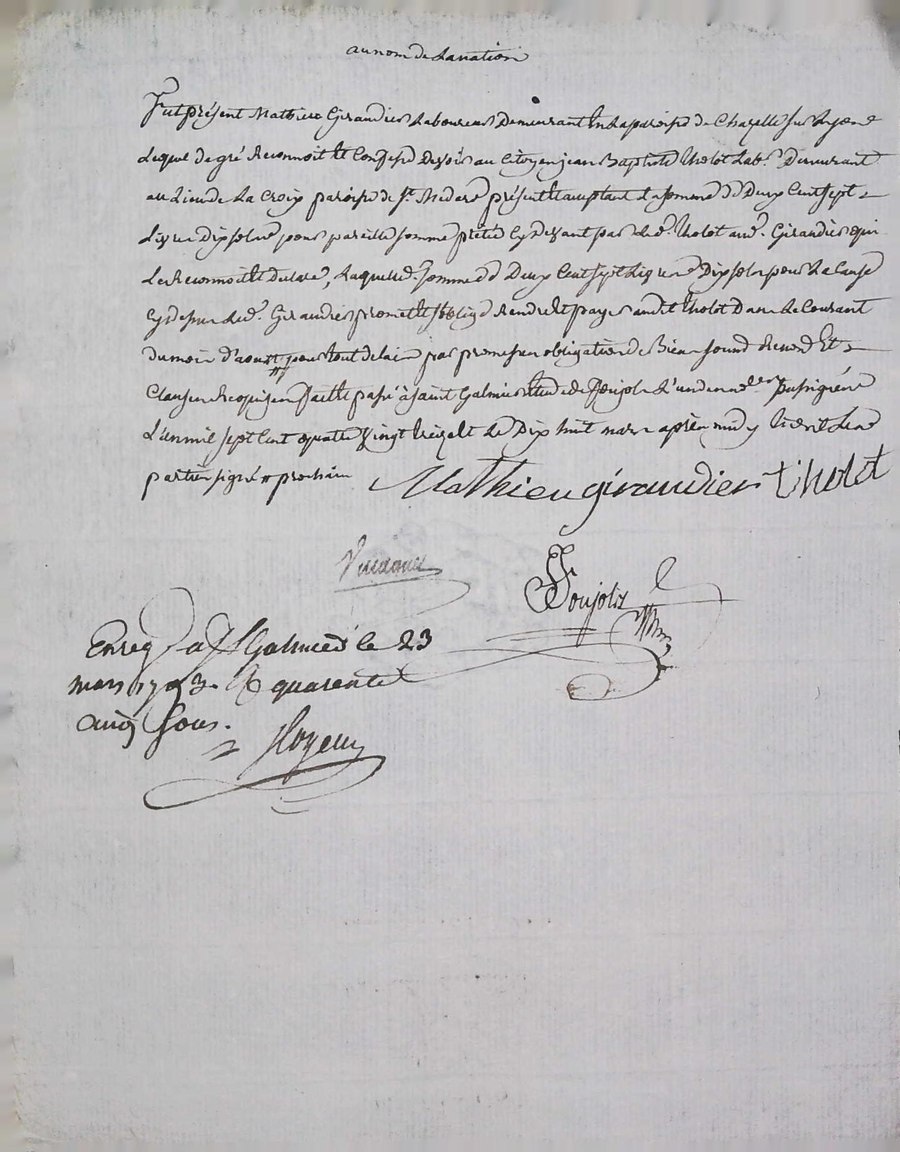 au nom de La nation
fut présent Mathieu Girandier Laboureur Demeurant En La paroisse de Chazelle sur
Lequel de gré Reconnoit Et Confesse Devoir au Citoyen jean Baptiste tholot Lab.r Demeurant
au Lieu de La Croix paroisse de St. Medard présent Et acceptant La somme de Deux Cent sept
Livres Dix sols pour pareille somme prêtée Cy devant par led. tholot aud. Girandier qui
Le Reconnoit Et Declare, Laquelle d. somme de Deux Cent sept Livres Dix sols pour La Cause
Cy dessus led. Girandier promet Et s'oblige Rendre Et payer audit tholot Dans Le Courant
du mois d'aoust pour tout delai par promesses obligation de Biens soumd Renond Et
Clauses Requises fait Et passé à saint Galmier Etude de Soujolz L'un des nres
L'an mil sept Cent quatre Vingt treize Et Le Dix huit mars après midy
parties signé # prochain
Mathieu girandier tholot
Soujolz
Enreg à St Galmier le 23
mars 1793. R quarente
cinq sous.